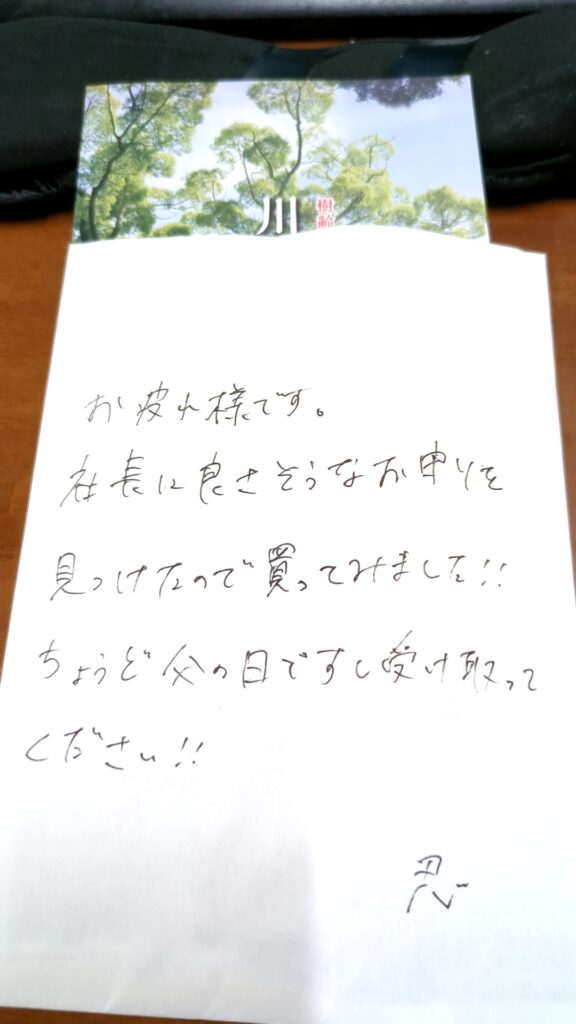 川
樹齢
お疲れ様です。
社長に良さそうなお守りを
見つけたので買ってみました!!
ちょうど父の日ですし受け取って
ください!!
忍